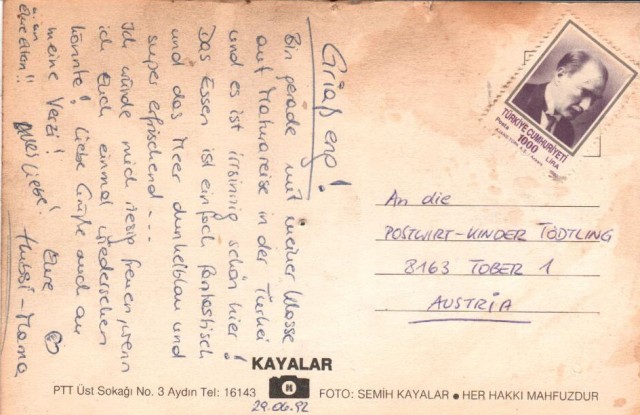 Griaß eng!
Bin gerade mit meiner Klasse
auf Maturareise in der Türkei
und es ist irrsinnig schön hier!
Das Essen ist einfach fantastisch
und das Meer dunkelblau und
super erfrischend ---
Ich würde mich riesig freuen wenn
ich Euch einmal wiedersehen
könnte! Liebe Grüße auch an
meine Vezi! Eure
Alles Liebe!
u. an
Eure Eltern!!
TÜRKİYE CUMHURİYETİ
Posta 1000 LIRA
An die
POSTWIRT-KINDER TÖDTLING
8163 TOBER 1
AUSTRIA
KAYALAR
PTT Üst Sokağı No. 3 Aydın Tel: 16143
FOTO: SEMİH KAYALAR ● HER HAKKI MAHFUZDUR
29.06.92